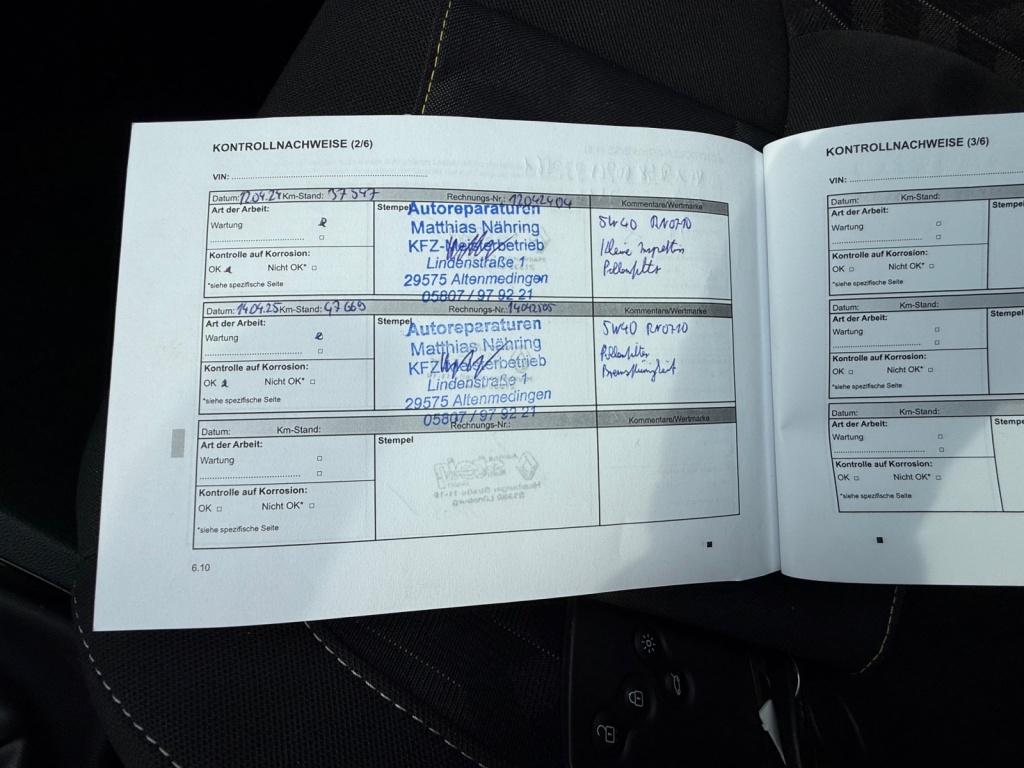 KONTROLLNACHWEISE (2/6)
VIN:
Datum: 12.04.24 Km-Stand: 37 547 Rechnungs-Nr.: 12042404 Kommentare/Wertmarke
Art der Arbeit:
Wartung
Kontrolle auf Korrosion:
OK Nicht OK*
*siehe spezifische Seite
Stempel
Autoreparaturen
Matthias Nähring
KFZ-Meisterbetrieb
Lindenstraße 1
29575 Altenmedingen
05807 / 97 92 21
5W40 RN0710
Kleine Inspektion
Pollenfilter
Datum: 14.04.25 Km-Stand: 47 669 Rechnungs-Nr.: 14042505 Kommentare/Wertmarke
Art der Arbeit:
Wartung
Kontrolle auf Korrosion:
OK Nicht OK*
*siehe spezifische Seite
Stempel
Autoreparaturen
Matthias Nähring
KFZ-Meisterbetrieb
Lindenstraße 1
29575 Altenmedingen
05807 / 97 92 21
5W40 RN0710
Pollenfilter
Bremsflüssigkeit
Datum: Km-Stand: Rechnungs-Nr.: Kommentare/Wertmarke
Art der Arbeit:
Wartung
Kontrolle auf Korrosion:
OK Nicht OK*
*siehe spezifische Seite
Stempel
6.10
KONTROLLNACHWEISE (3/6)
VIN:
Datum: Km-Stand:
Art der Arbeit:
Wartung
Kontrolle auf Korrosion:
OK Nicht OK*
*siehe spezifische Seite
Datum: Km-Stand:
Art der Arbeit:
Wartung
Kontrolle auf Korrosion:
OK Nicht OK*
*siehe spezifische Seite
Datum: Km-Stand:
Art der Arbeit:
Wartung
Kontrolle auf Korrosion:
OK Nicht OK*
*siehe spezifische Seite